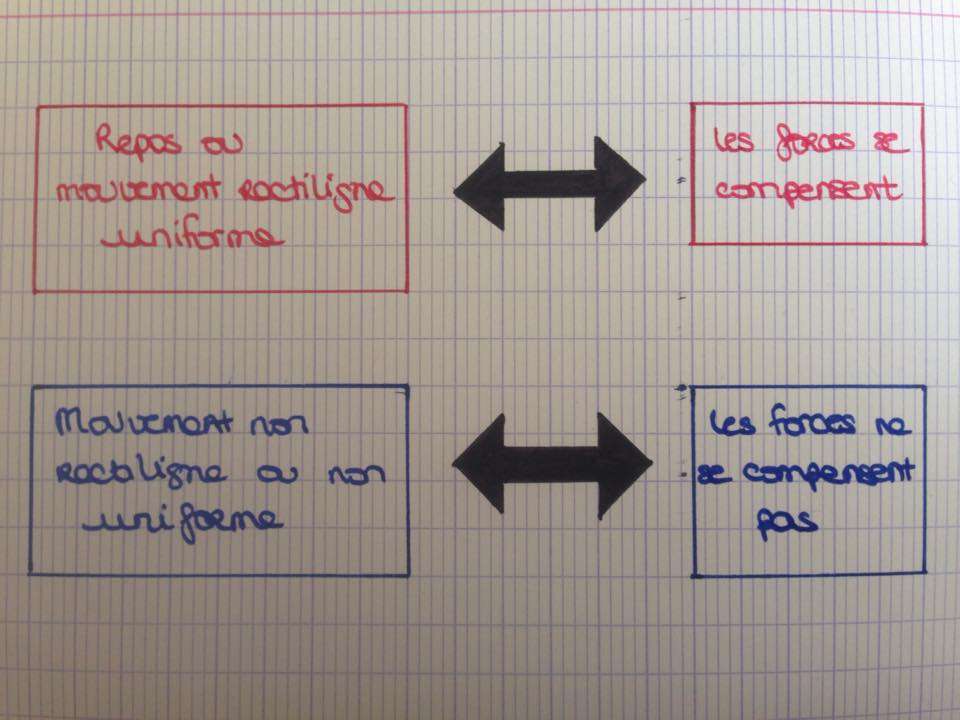 Repos ou
mouvement rectiligne
uniforme
les forces se
compensent
Mouvement non
rectiligne ou non
uniforme
les forces ne
se compensent
pas